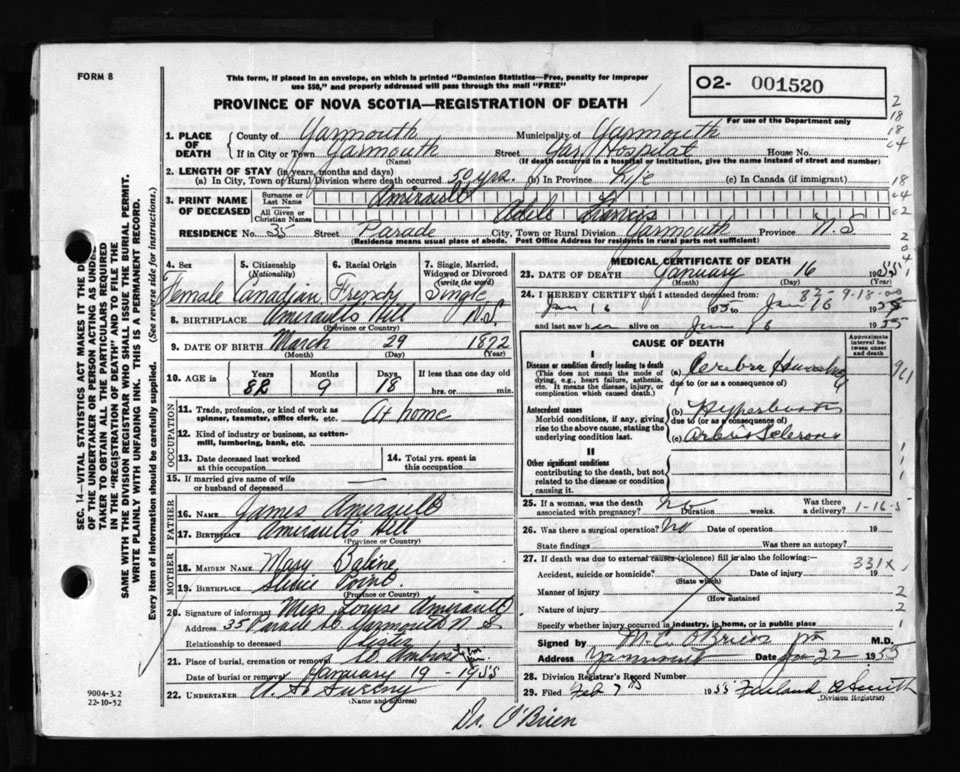 FORM 8
This form, if placed in an envelope, on which is printed "Dominion Statistics—Free, penalty for improper
use $50," and properly addressed will pass through the mail "FREE"
PROVINCE OF NOVA SCOTIA—REGISTRATION OF DEATH
O2- 001520
For use of the Department only
SEC. 14—VITAL STATISTICS ACT MAKES IT THE D
OF THE UNDERTAKER OR PERSON ACTING AS UNDER
TAKER TO OBTAIN ALL THE PARTICULARS REQUIRED
IN THE "REGISTRATION OF DEATH" AND TO FILE THE
SAME WITH THE DIVISION REGISTRAR WHO SHALL ISSUE THE BURIAL PERMIT.
WRITE PLAINLY WITH UNFADING INK. THIS IS A PERMANENT RECORD.
Every item of information should be carefully supplied. (See reverse side for instructions.)
1. PLACE OF DEATH
County of Yarmouth Municipality of Yarmouth
If in City or Town Yarmouth Street Yar. Hospital House No.
(Name) (If death occurred in a hospital or institution, give the name instead of street and number)
2. LENGTH OF STAY (in years, months and days)
(a) In City, Town or Rural Division where death occurred 50 yrs. (b) In Province Life (c) In Canada (if immigrant)
3. PRINT NAME OF DECEASED
Surname or Last Name Amirault
All Given or Christian Names Adele Francis
RESIDENCE No. 35 Street Parade City, Town or Rural Division Yarmouth Province N.S.
(Residence means usual place of abode. Post Office Address for residents in rural parts not sufficient)
4. Sex 5. Citizenship (Nationality) 6. Racial Origin 7. Single, Married, Widowed or Divorced (write the word)
Female Canadian French Single
8. BIRTHPLACE Amiraults Hill N.S.
(Province or Country)
9. DATE OF BIRTH March 29 1872
(Month) (Day) (Year)
10. AGE in Years Months Days If less than one day old
82 9 18 hrs. or min.
OCCUPATION
11. Trade, profession, or kind of work as spinner, teamster, office clerk, etc. At home
12. Kind of industry or business, as cotton-mill, lumbering, bank, etc.
13. Date deceased last worked at this occupation
14. Total yrs. spent in this occupation
15. If married give name of wife or husband of deceased —
FATHER
16. Name James Amirault
17. Birthplace Amiraults Hill
(Province or Country)
MOTHER
18. MAIDEN NAME Mary Babine
19. BIRTHPLACE Sluice Point
(Province or Country)
20. Signature of informant Miss Louise Amirault
Address 35 Parade St. Yarmouth N.S
Relationship to deceased Sister
21. Place of burial, cremation or removal St Ambrose
Date of burial or removal January 19 - 1955
22. UNDERTAKER A. S. Sweeny
(Name and Address)
9004-3.2
22-10-52
MEDICAL CERTIFICATE OF DEATH
23. DATE OF DEATH January 16 1955
(Month) (Day) (Year)
82-9-18-00
24. I HEREBY CERTIFY that I attended deceased from:
Jan 16 1955 to Jan 16 1955
and last saw her alive on Jan 16 1955
CAUSE OF DEATH
Approximate interval between onset and death
I
Disease or condition directly leading to death
(This does not mean the mode of dying, e.g., heart failure, asthenia, etc. It means the disease, injury, or complication which caused death.)
(a) due to (or as a consequence of)
Antecedent causes
Morbid conditions, if any, giving rise to the above cause, stating the underlying condition last.
(b) due to (or as a consequence of)
(c)
II
Other significant conditions
contributing to the death, but not related to the disease or condition causing it.
25. If a woman, was the death associated with pregnancy? No Duration weeks. Was there a delivery?
1-16-5
26. Was there a surgical operation? No Date of operation 19
State findings Was there an autopsy?
27. If death was due to external causes (violence) fill in also the following:
331X
Accident, suicide or homicide? Date of injury 19
(State which)
Manner of injury
(How sustained
Nature of injury
Specify whether injury occurred in industry, in home, or in public place
Signed by M.C. O'Brien M.D.
Address Yarmouth Date Jan 22 1955
28. Division Registrar's Record No.
29. Filed Feb 7th 1955 Smith
(Division Registrar)
Dr. O'Brien